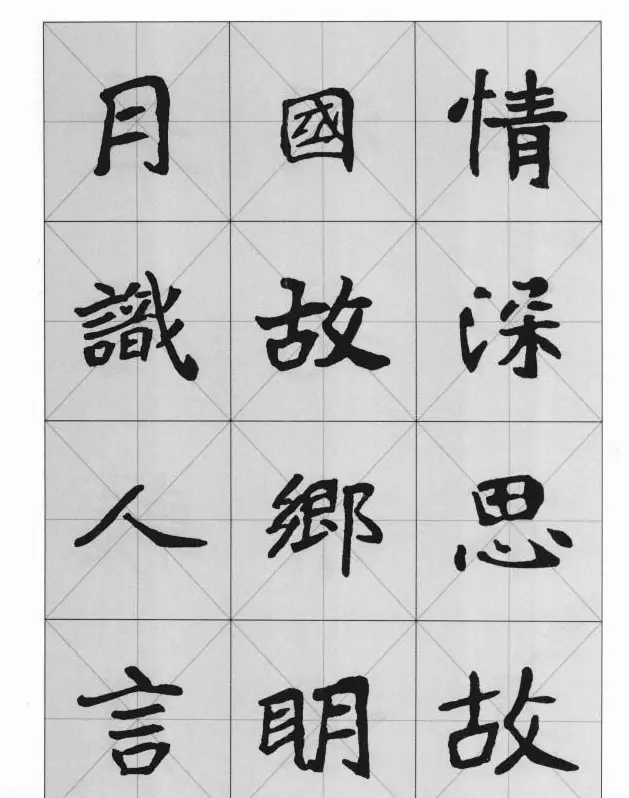 情深思故
國故鄉明
月識人言